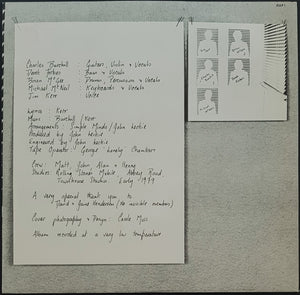 Charles Burchill : Guitars, Violin & Vocals
Derek Forbes : Bass & Vocals
Brian McGee : Drums, Percussion & Vocals
Michael McNeil : Keyboards & Vocals
Jim Kerr : Voice
Lyrics : Kerr
Music : Burchill / Kerr
Arrangements : Simple Minds / John Leckie
Produced by John Leckie
Engineered by John Leckie
Tape Operator : George Chambers
Crew : Matt, John, Alan &
Studios : Rolling Mobile, Abbey Road,
Townhouse Studios. Early 1979
A very special thank you to
David & Jaine Henderson (the invisible members)
Cover photography & Design Carole Moss
Album recorded at a very low temperature